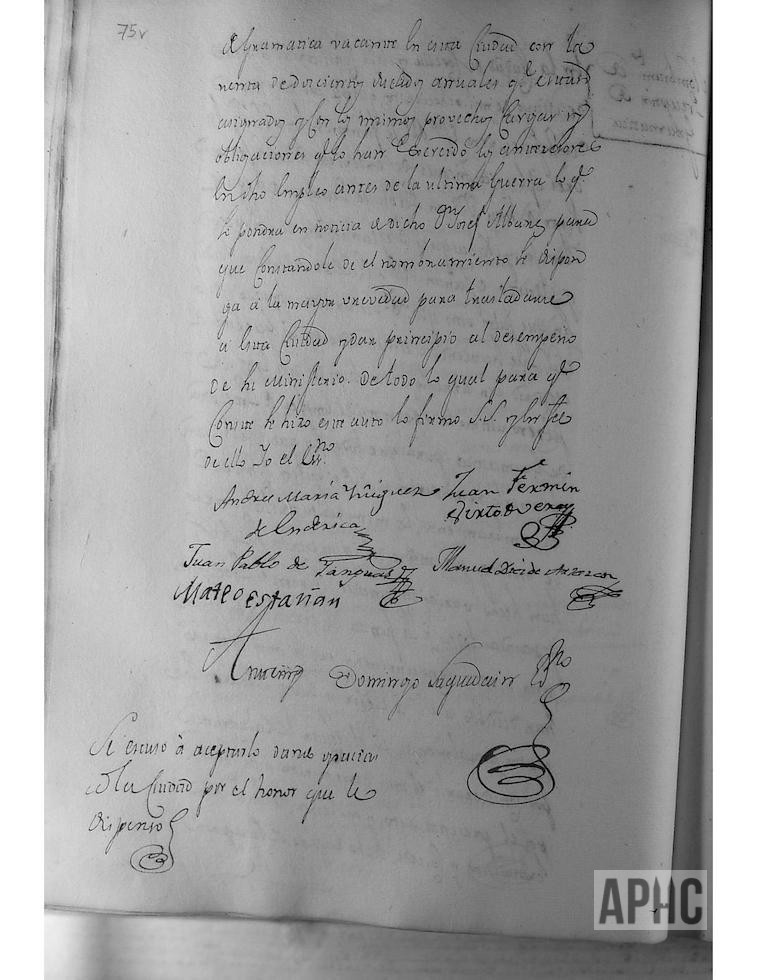 75v
de Gramatica vacante en esta Ciudad con la
renta de doscientos ducados anuales qe están
asignados y con los mismos provechos cargas y
obligaciones qe lo han exercido los anteriores
en dho Empleo antes de la ultima Guerra lo qe
se pondra en noticia de dicho Dn Josef Albane para
que constandole de el nombramiento se dispon
ga á la mayor brevedad para trasladarse
á esta Ciudad y dar principio al desempeño
de su Ministerio. De todo lo qual para qe
Conste se hizo este auto lo firmo S.S. y en fee
de ello Yo el Essno
Andres Maria Yñiguez Juan Fermin
de
Juan Pablo de Tarazona Manuel Diez de
Mateo estañan
Antemi Domingo Saguaduin Essno
Se escuso á aceptarlo dando gracias
a la Ciudad por el honor que le
dispenso
APHC